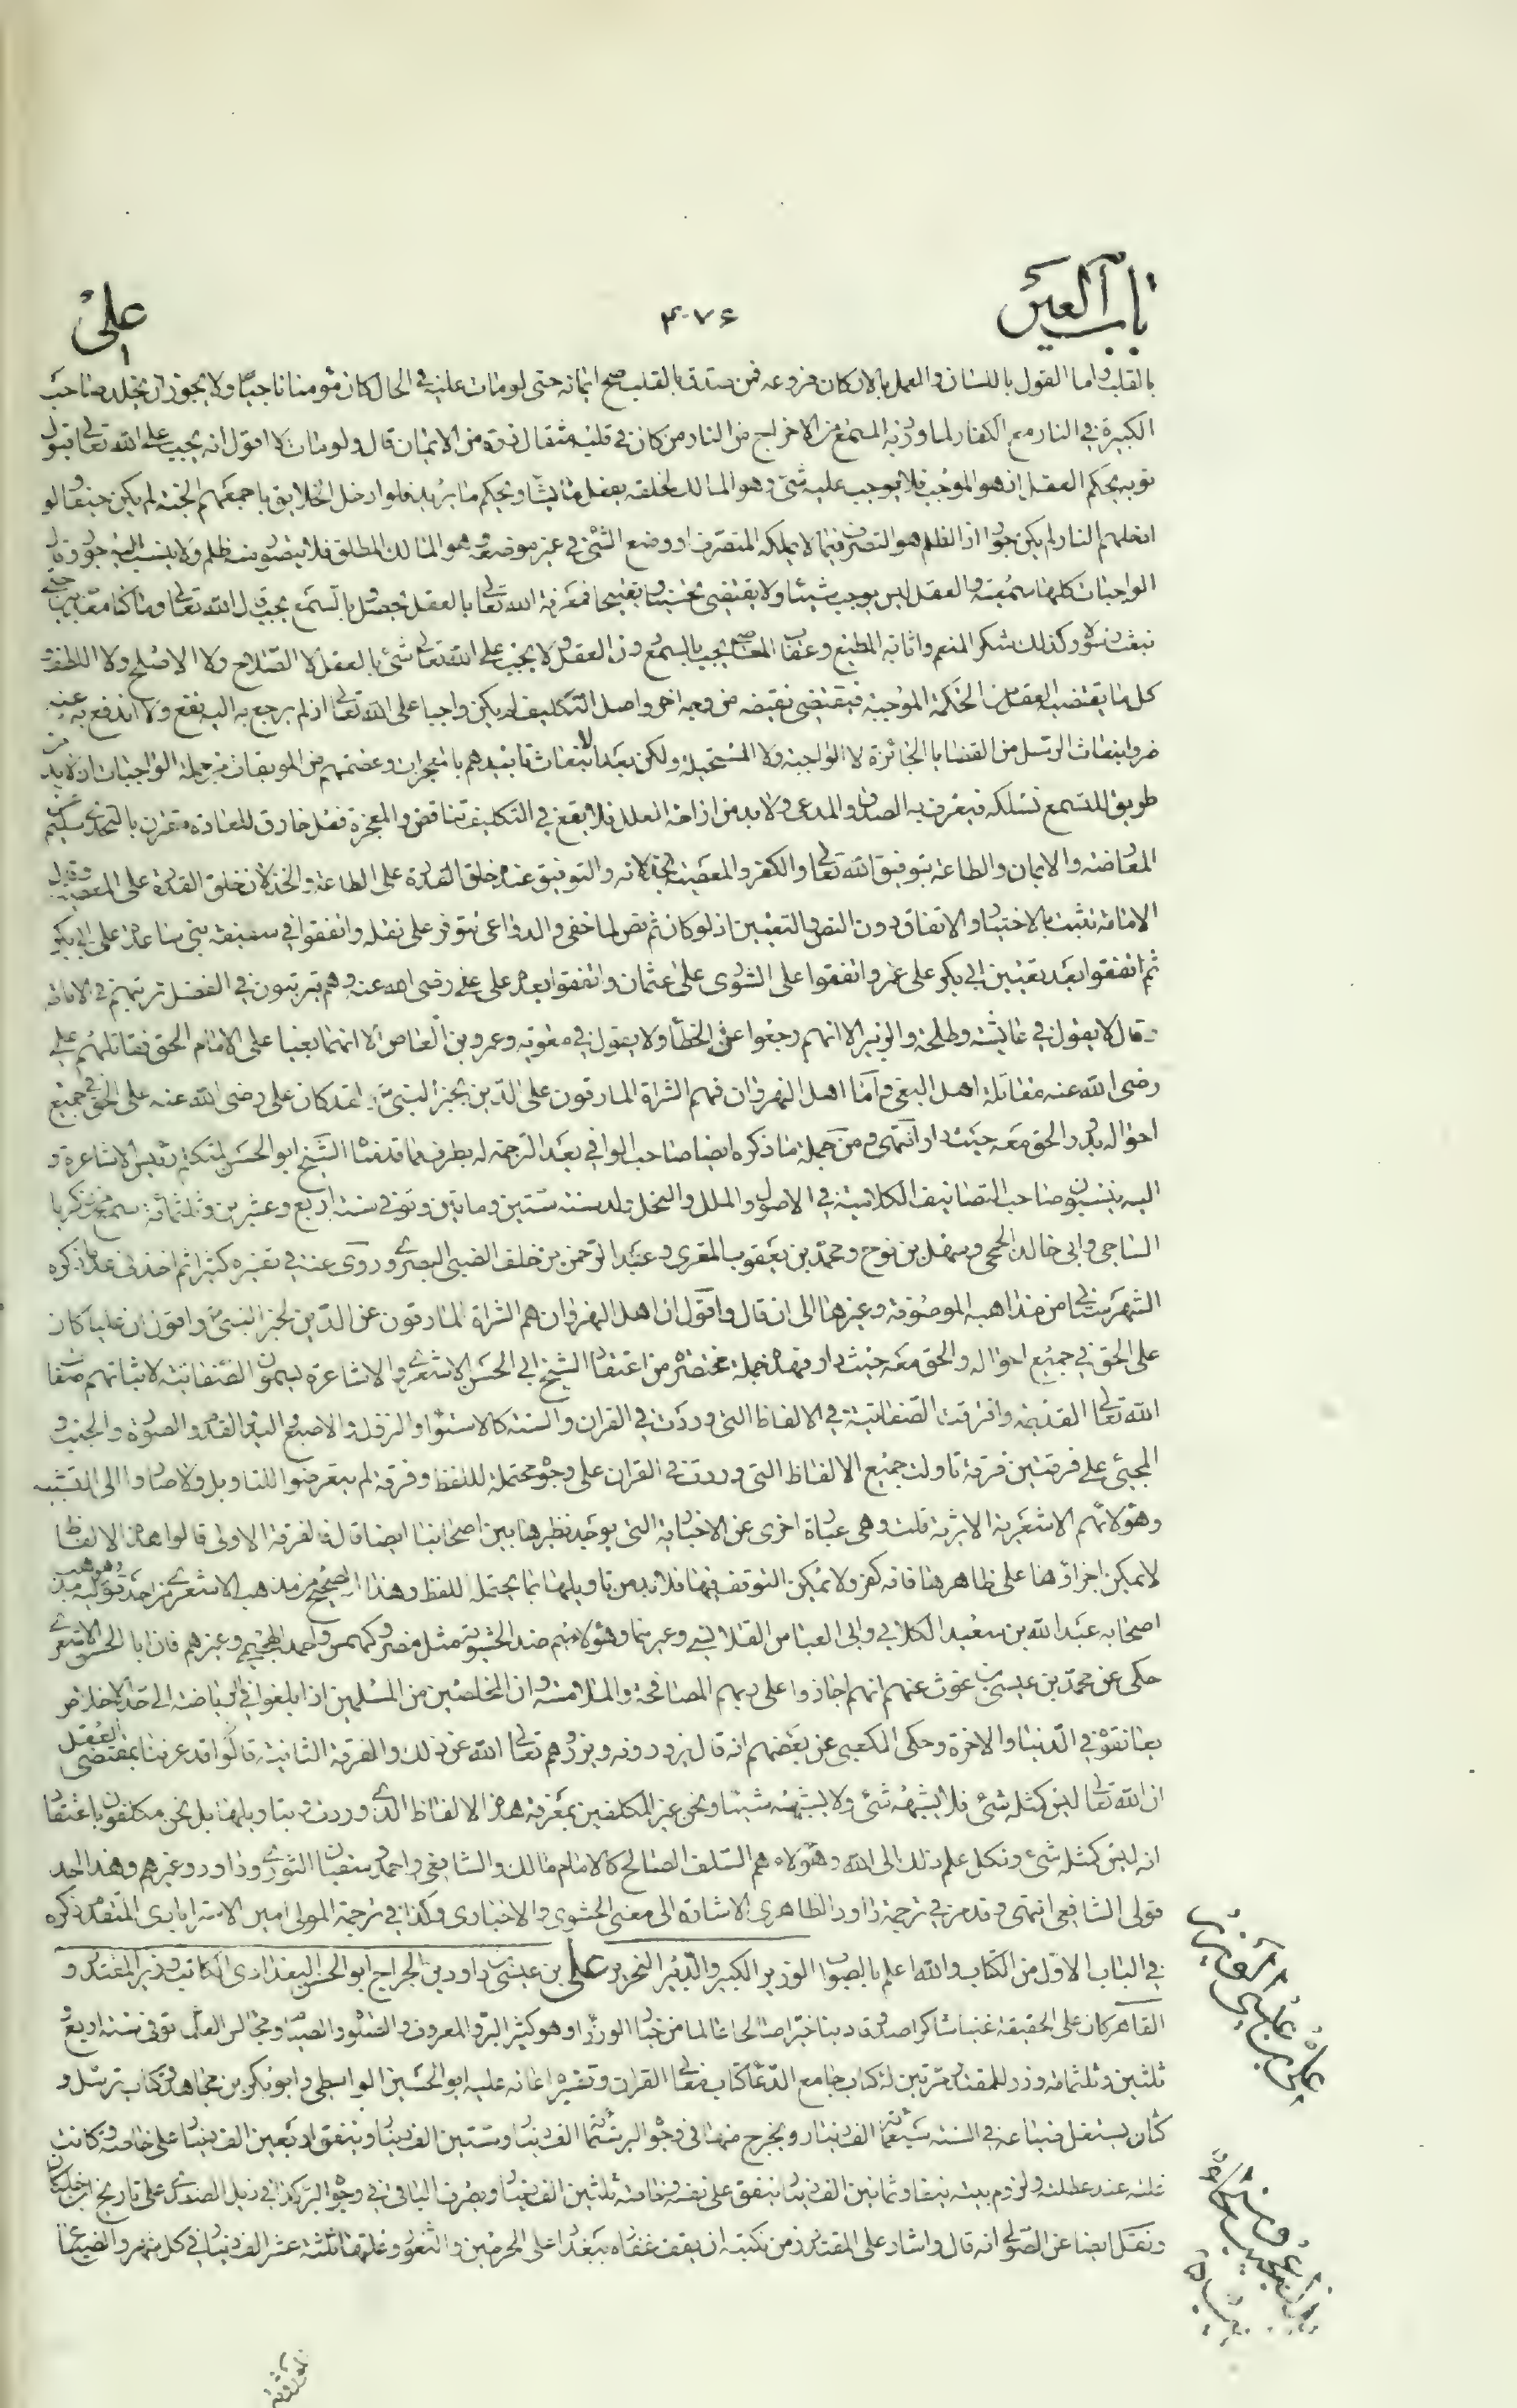 باب العين
۴۷۶
علي
بالقلب واما القول باللسان والعمل بالاركان ففروعه فمن صدق بالقلب صح ايمانه حتى لو مات عليه في الحال كان مؤمنا ناجيا ولا يجوز ان يخلد صاحب
الكبيرة في النار مع الكفار لما ورد به السمع من الاخراج من النار من كان في قلبه مثقال ذرة من الايمان قال ولو مات لا اقول انه يجب على الله تعالى قبول
توبه بحكم العقل اذ هو الموجب فلا يوجب عليه شئ وهو المالك لخلقه يفعل ما يشاء ويحكم ما يريد فلو ادخل الخلايق باجمعهم الجنة لم يكن حيفا ولو
ادخلهم النار لم يكن جورا اذ الظلم هو التصرف فيما لا يملكه المتصرف او وضع الشئ في غير موضعه وهو المالك المطلق فلا يتصور منه ظلم ولا ينسب اليه جور وقال
الواجبات كلها سمعية والعقل ليس يوجب شيئا ولا يقتضى تحسينا وتقبيحا فمعرفة الله تعالى بالعقل تحصل وبالسمع تجب قال الله تعالى وما كنا معذبين حتى
نبعث رسولا وكذلك شكر المنعم واثابة المطيع وعقاب العاصي يجب بالسمع دون العقل ولا يجب على الله تعالى شئ بالعقل لا الصلاح ولا الاصلح ولا اللطف و
كل ما يقتضيه العقل من الحكمة الموجبة فيقتضى نقيضه من وجه اخر واصل التكليف لم يكن واجبا على الله تعالى اذ لم يرجع به اليه نفع ولا اندفع به عنه
ضر وانبعاث الرسل من القضايا الجائزة لا الواجبة ولا المستحيلة ولكن بعد الانبعاث تاييدهم بالمعجزات وعصمتهم من الموبقات من جملة الواجبات اذ لا بد من
طريق للسمع نسلكه فيعرف به الصدق والمدعى ولا بد من ازاحة العلل فلا يقع في التكليف تناقض والمعجزة فعل خارق للعادة مقترن بالتحدى سليم عن
المعارضة والايمان والطاعة بتوفيق الله تعالى والكفر والمعصية بخذلانه والتوفيق عنده خلق القدرة على الطاعة والخذلان خلق القدرة على المعصية وقال
الامامة تثبت بالاختيار والاتفاق دون النص والتعيين اذ لو كان ثم نص لما خفى والدواعى تتوفر على نقله واتفقوا في سقيفة بنى ساعدة على ابى بكر
ثم اتفقوا بعد تعيين ابى بكر على عمر واتفقوا على الشورى على عثمان واتفقوا بعده على علي رضى الله عنه وهم يترتبون في الفضل ترتيبهم في الامامة
وقال لا يقول في عايشة وطلحة والزبير الا انهم رجعوا عن الخطأ ولا يقول في معوية وعمرو بن العاص الا انهما بغيا على الامام الحق فقاتلهم على
رضى الله عنه مقاتلة اهل البغى واما اهل النهروان فهم الشراة المارقون على الدين بخبر النبى ص ولقد كان على رضى الله عنه على الحق في جميع
احواله يدور الحق معه حيث دار انتهى ومن جملة ما ذكره ايضا صاحب الوافي بعد الترجمة له بطرف مما قدمناه الشيخ ابو الحسن المتكلم رئيس الاشاعرة و
اليه ينتسبون صاحب التصانيف الكلامية في الاصول والملل والنحل ولد سنة ستين وماتين وتوفى سنة اربع وعشرين وثلثمائة سمع من زكريا
الساجى وابى خالد الجمحى وسهل بن نوح ومحمد بن يعقوب المقرى وعبد الرحمن بن خلف الضبى البصرى وروى عنه في تفسيره كثيرا ثم اخذ في عد ما ذكره
الشهرستانى من مذاهبه الموصوفة وغيرها الى ان قال واقول ان اهل النهروان هم الشراة المارقون عن الدين لخبر النبى ص واقول ان عليا كان
على الحق في جميع احواله والحق معه حيث دار فهذه جملة مختصرة من اعتقاد الشيخ ابى الحسن الاشعرى والاشاعرة يسمون الصفاتية لاثباتهم صفات
الله تعالى القديمة وافترقت الصفاتية في الالفاظ التى وردت في القران والسنة كالاستواء والنزول والاصبع واليد والقدم والصورة والجنب و
المجئ على فرقتين فرقة تاولت جميع الالفاظ التى وردت في القران على وجوه محتملة للفظ وفرقة لم يتعرضوا للتاويل ولا صاروا الى التشبيه
وهؤلاءهم الاشعرية الاثرية قلت وهى عبارة اخرى عن الاخبارية التى يوجد نظيرها بين اصحابنا ايضا قال فالفرقة الاولى قالوا هذه الالفاظ
لا يمكن اجراؤها على ظاهرها فانه كفر ولا يمكن التوقف فيها فلا بد من تاويلها بما يحتمله اللفظ وهذا الصحيح من مذهب الاشعرى من احد قوليه وهو مذهب
اصحابه عبد الله بن سعيد الكلابي وابى العباس القلانسى وغيرهما وهؤلاء هم ضد الحشوية مثل مضر وكهمس واحمد الهجيمى وغيرهم فان ابا الحسن الاشعرى
حكى عن محمد بن عيسى بن غوث عنهم انهم اجازوا على ربهم المصافحة والملامسة وان المخلصين من المسلمين اذا بلغوا في الرياضة الى حد الاخلاص
يعانقوه في الدنيا والاخرة وحكى الكعبى عن بعضهم انه قال يزورونه ويزورهم تعالى الله عن ذلك والفرقة الثانية قالوا قد عرفنا بمقتضى العقل
ان الله تعالى ليس كمثله شئ فلا يشبهه شئ ولا يشبه شيئا ونحن غير المكلفين بمعرفة هذه الالفاظ الذى وردت وبتاويلها بل نحن مكلفون باعتقاد
انه ليس كمثله شئ ونكل علم ذلك الى الله وهؤلاء هم السلف الصالح كالامام مالك والشافعى واحمد وسفيان الثورى وداود وغيرهم وهذا احد
قولى الشافعى انتهى وقد مر في ترجمة داود الظاهرى الاشارة الى معنى الحشوى والاخبارى وكذا في ترجمة المولى امين الاسترابادى المتقدم ذكره
في الباب الاول من الكتاب والله اعلم بالصواب الوزير الكبير والدبير النحرير علي بن عيسى بن داود بن الجراح ابو الحسن البغدادى الكاتب وزير المقتدر و
القاهر كان على الحقيقة غنيا شاكرا صدوقا دينا خيرا صالحا عالما من خيار الوزراء وهو كثير البر والمعروف والصلوة والصيام ومجالس العلماء توفى سنة اربع و
ثلثين وثلثمائة وزر للمقتدر مرتين له كتاب جامع الدعاء كتاب معانى القران وتفسيره اعانه عليه ابو الحسين الواسطى وابو بكر بن مجاهد وكتاب ترسله و
كان يستغل ضياعه في السنة سبعمائة الف دينار ويخرج منها في وجوه البر ستمائة الف دينار وستين الف دينار وينفق اربعين الف دينار على خاصته وكانت
غلته عند عطلته ولزوم بيته نيفا وثمانين الف دينار ينفق على نفسه وخاصته ثلثين الف دينار ويصرف الباقى في وجوه البر كذا في ذيل الصندى على تاريخ ابن خلكان
ونقل ايضا عن الصولى انه قال واشار على المقتدر زمن نكبته ان يقف عقاره ببغداد على الحرمين والثغور وغلتها ثلثة عشر الف دينار في كل شهر والضياع